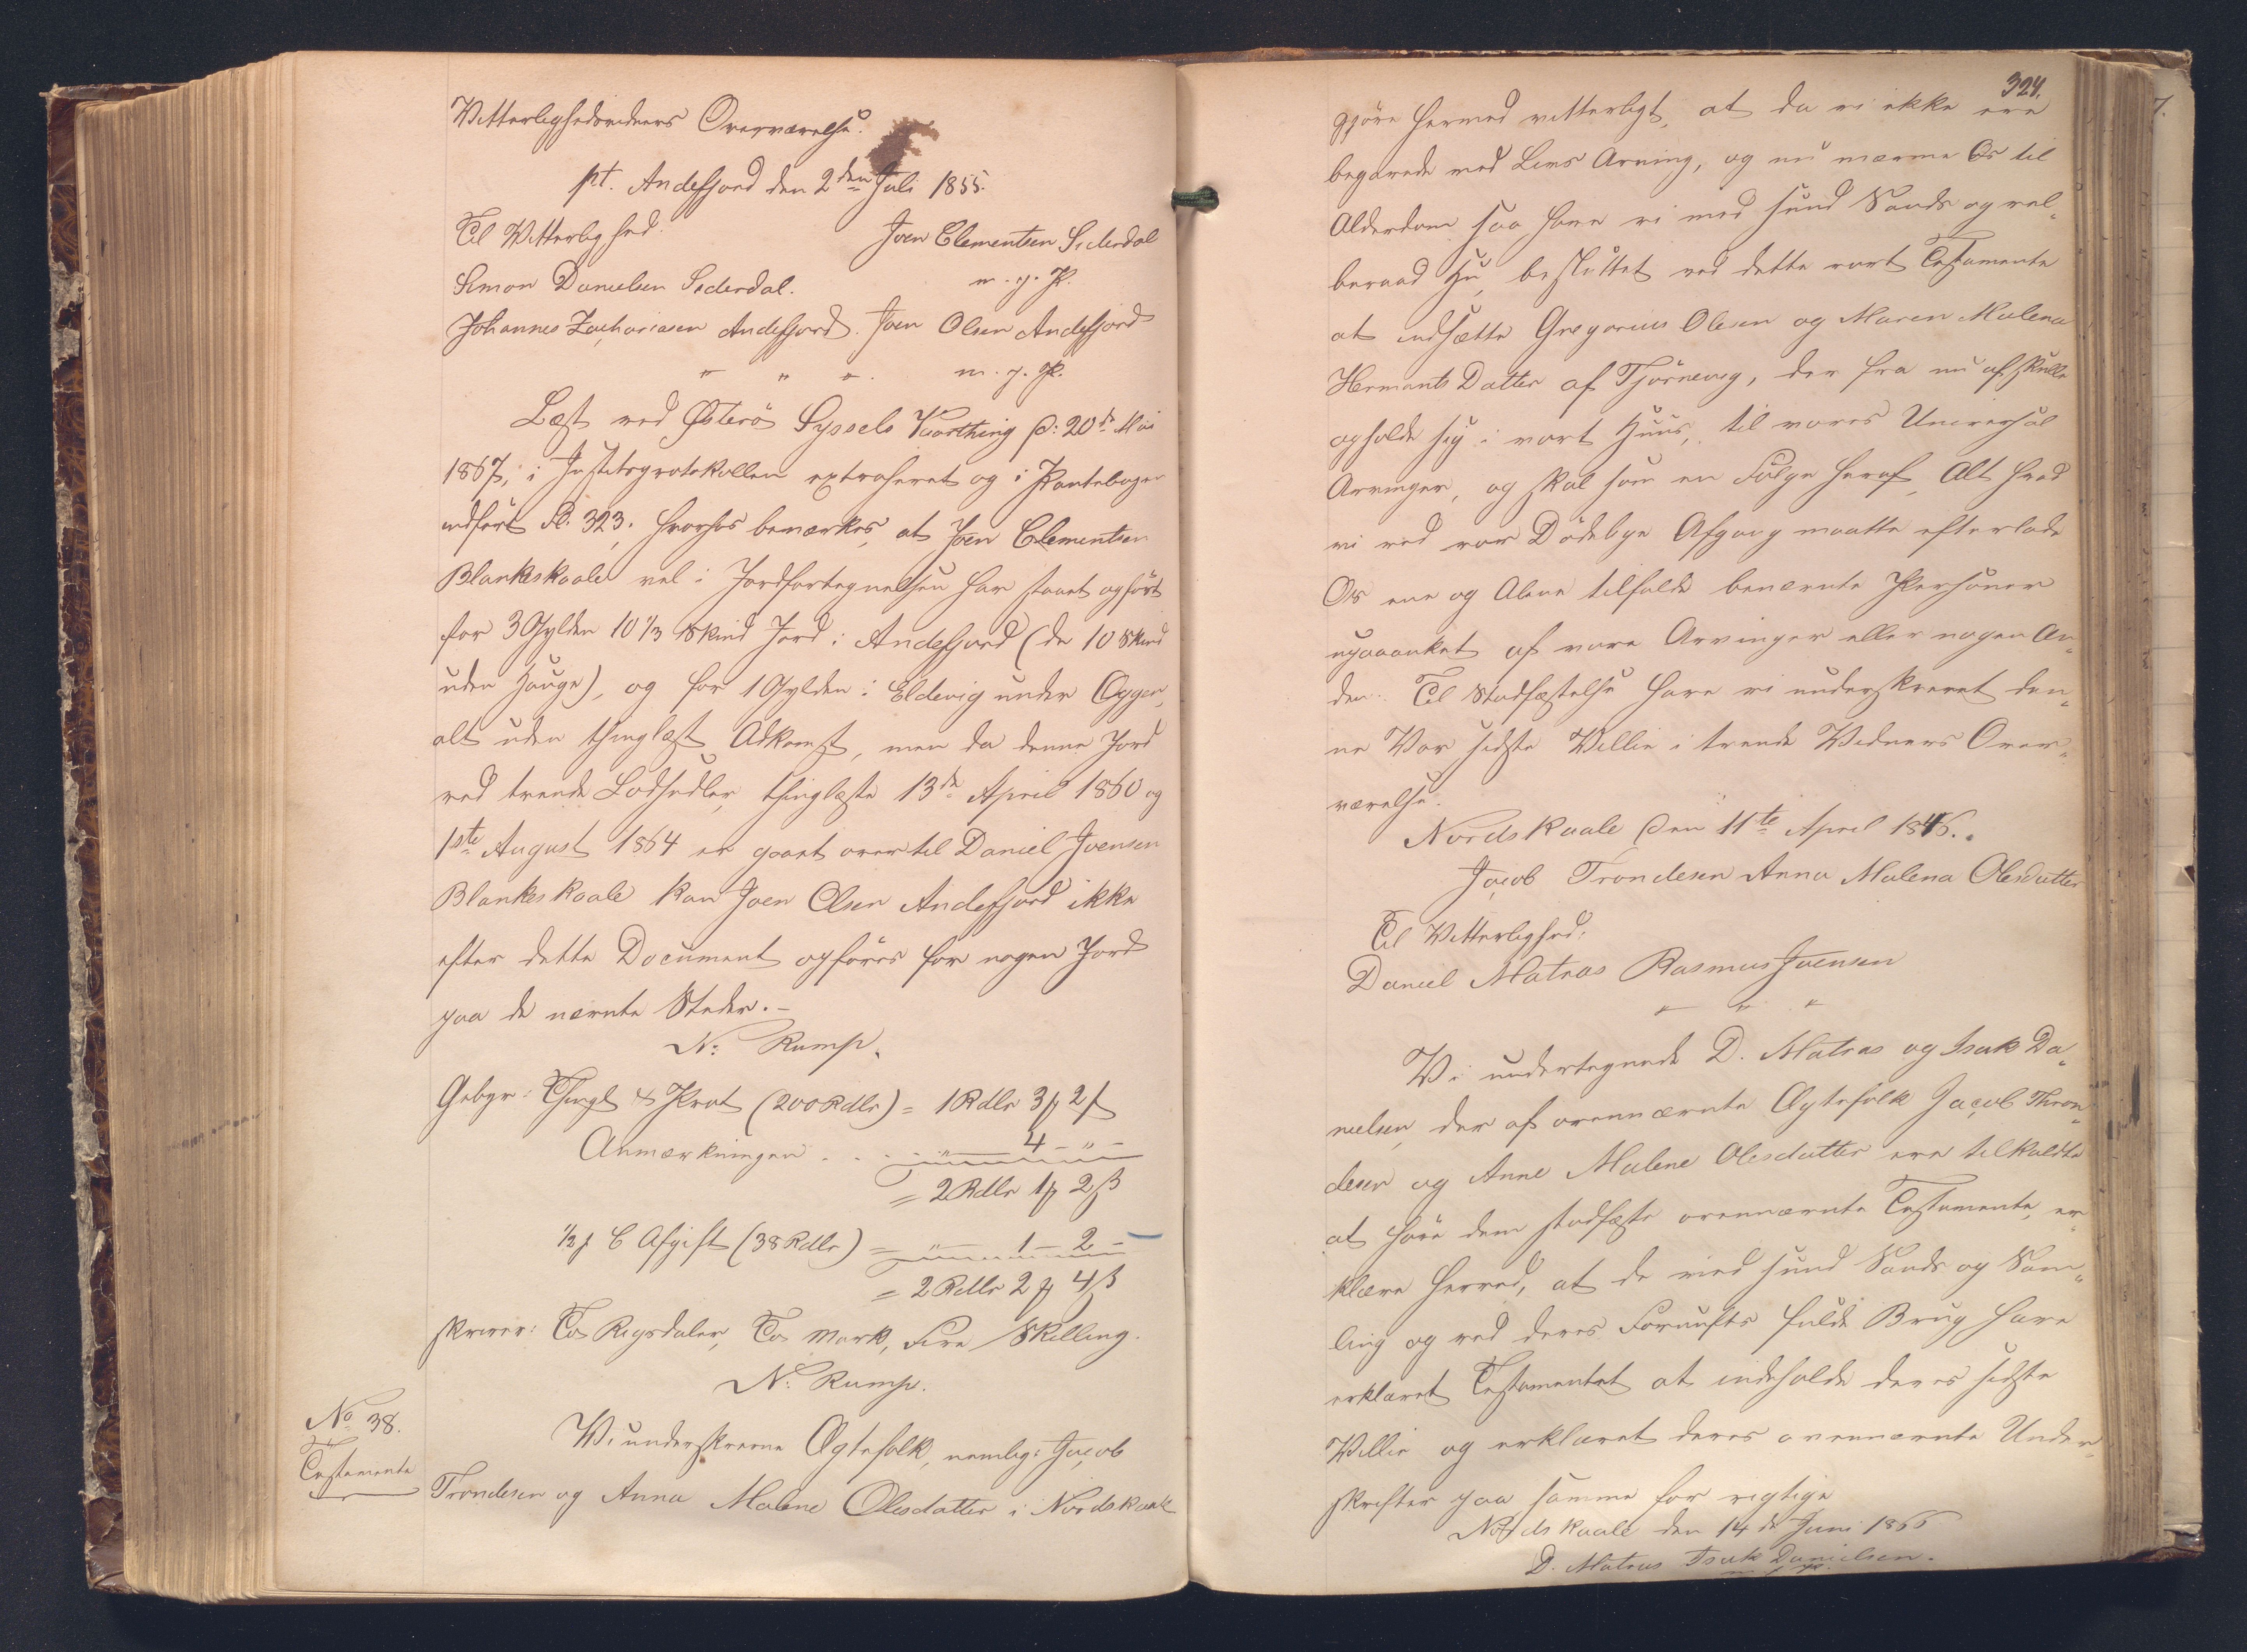 Vitterlighedsvidners Overværelse.
pt. Andefjord den 2den Juli 1855.
Til Vitterlighed. Joen Clementsen Siderdal
Simon Danielsen Siderdal. m. f. P.
Johannes Zachariasen Andefjord. Joen Olsen Andefjord
" " " m. f. P.
Læst ved Østerö Syssels Vaarthing d: 20de Mai
1867, i Justitsprotokollen extraheret og i Pantebogen
indført Fol. 323; hvorhos bemærkes, at Joen Clementsen
Blankeskaale vel i Jordfortegnelsen har staaet opført
for 3 Gylden 10 1/3 Skind Jord i Andefjord (de 10 Skind
uden Hauge), og for 1 Gylden i Eldevig under Oyger,
alt uden thinglæst Adkomst, men da denne Jord
ved trende Lodsedler, thinglæste 13de April 1860 og
1ste August 1864 er gaaet over til Daniel Joensen
Blankeskaale kan Joen Olsen Andefjord ikke
efter dette Document opføres for nogen Jord
paa de nævnte Steder.-
N: Rump.
Gebyr: Thingl & Prot (200 Rdlr) = 1 Rdlr 3 ℳ 2 ß
Anmærkningen . . . " 4 - " -
= 2 Rdlr 1 ℳ 2 ß
1/2 p C Afgift (38 Rdlr) = " 1 - 2 -
= 2 Rdlr 2 ℳ 4 ß
skriver: To Rigsdaler, To Mark, Fire Skilling.
N: Rump.
No 38.
Testamente
Vi underskrevne Ægtefolk, nemlig: Jacob
Trondesen og Anna Malene Olesdatter i Nordskaale
324.
gjöre hermed vitterligt, at da vi ikke ere
begavede med Livs Arving, og nu nærme Os til
Alderdom saa have vi med sund Sands og vel-
beraad Hu, besluttet ved dette vort Testamente
at indsætte Gregorius Olesen og Maren Malena
Hermants Datter af Tjörnevig, der fra nu af skulle
opholde sig i vort Huus, til vores Universal
Arvinger, og skal som en Følge heraf, Alt hvad
vi ved vor Dödelige Afgang maatte efterlade
Os ene og Alene tilfalde benævnte Personer
upaaanket af vore Arvinger eller nogen An-
den. Til Stadfæstelse have vi underskrevet den-
ne Vor sidste Villie i trende Vidners Over-
værelse.
Nordskaale Den 11te April 1846.
Jacob Trondesen Anna Malena Olesdatter
Til Vitterlighed:
Daniel Matras Rasmus Joensen
" " "
Vi undertegnede D. Matras og Isak Da-
nielsen, der af ovennævnte Ægtefolk Jacob Thron-
desen og Anne Malene Olesdatter ere tilkaldte
at høre dem stadfæste ovennævnte Testamente, er-
klære herved, at de med sund Sands og Sam-
ling og ved deres Fornufts fulde Brug have
erklæret Testamentet at indeholde deres sidste
Villie og erklæret deres ovennævnte Under-
skrifter paa samme for rigtige
Nordskaale den 14de Juni 1866
D. Matras Isak Danielsen.
m f P.